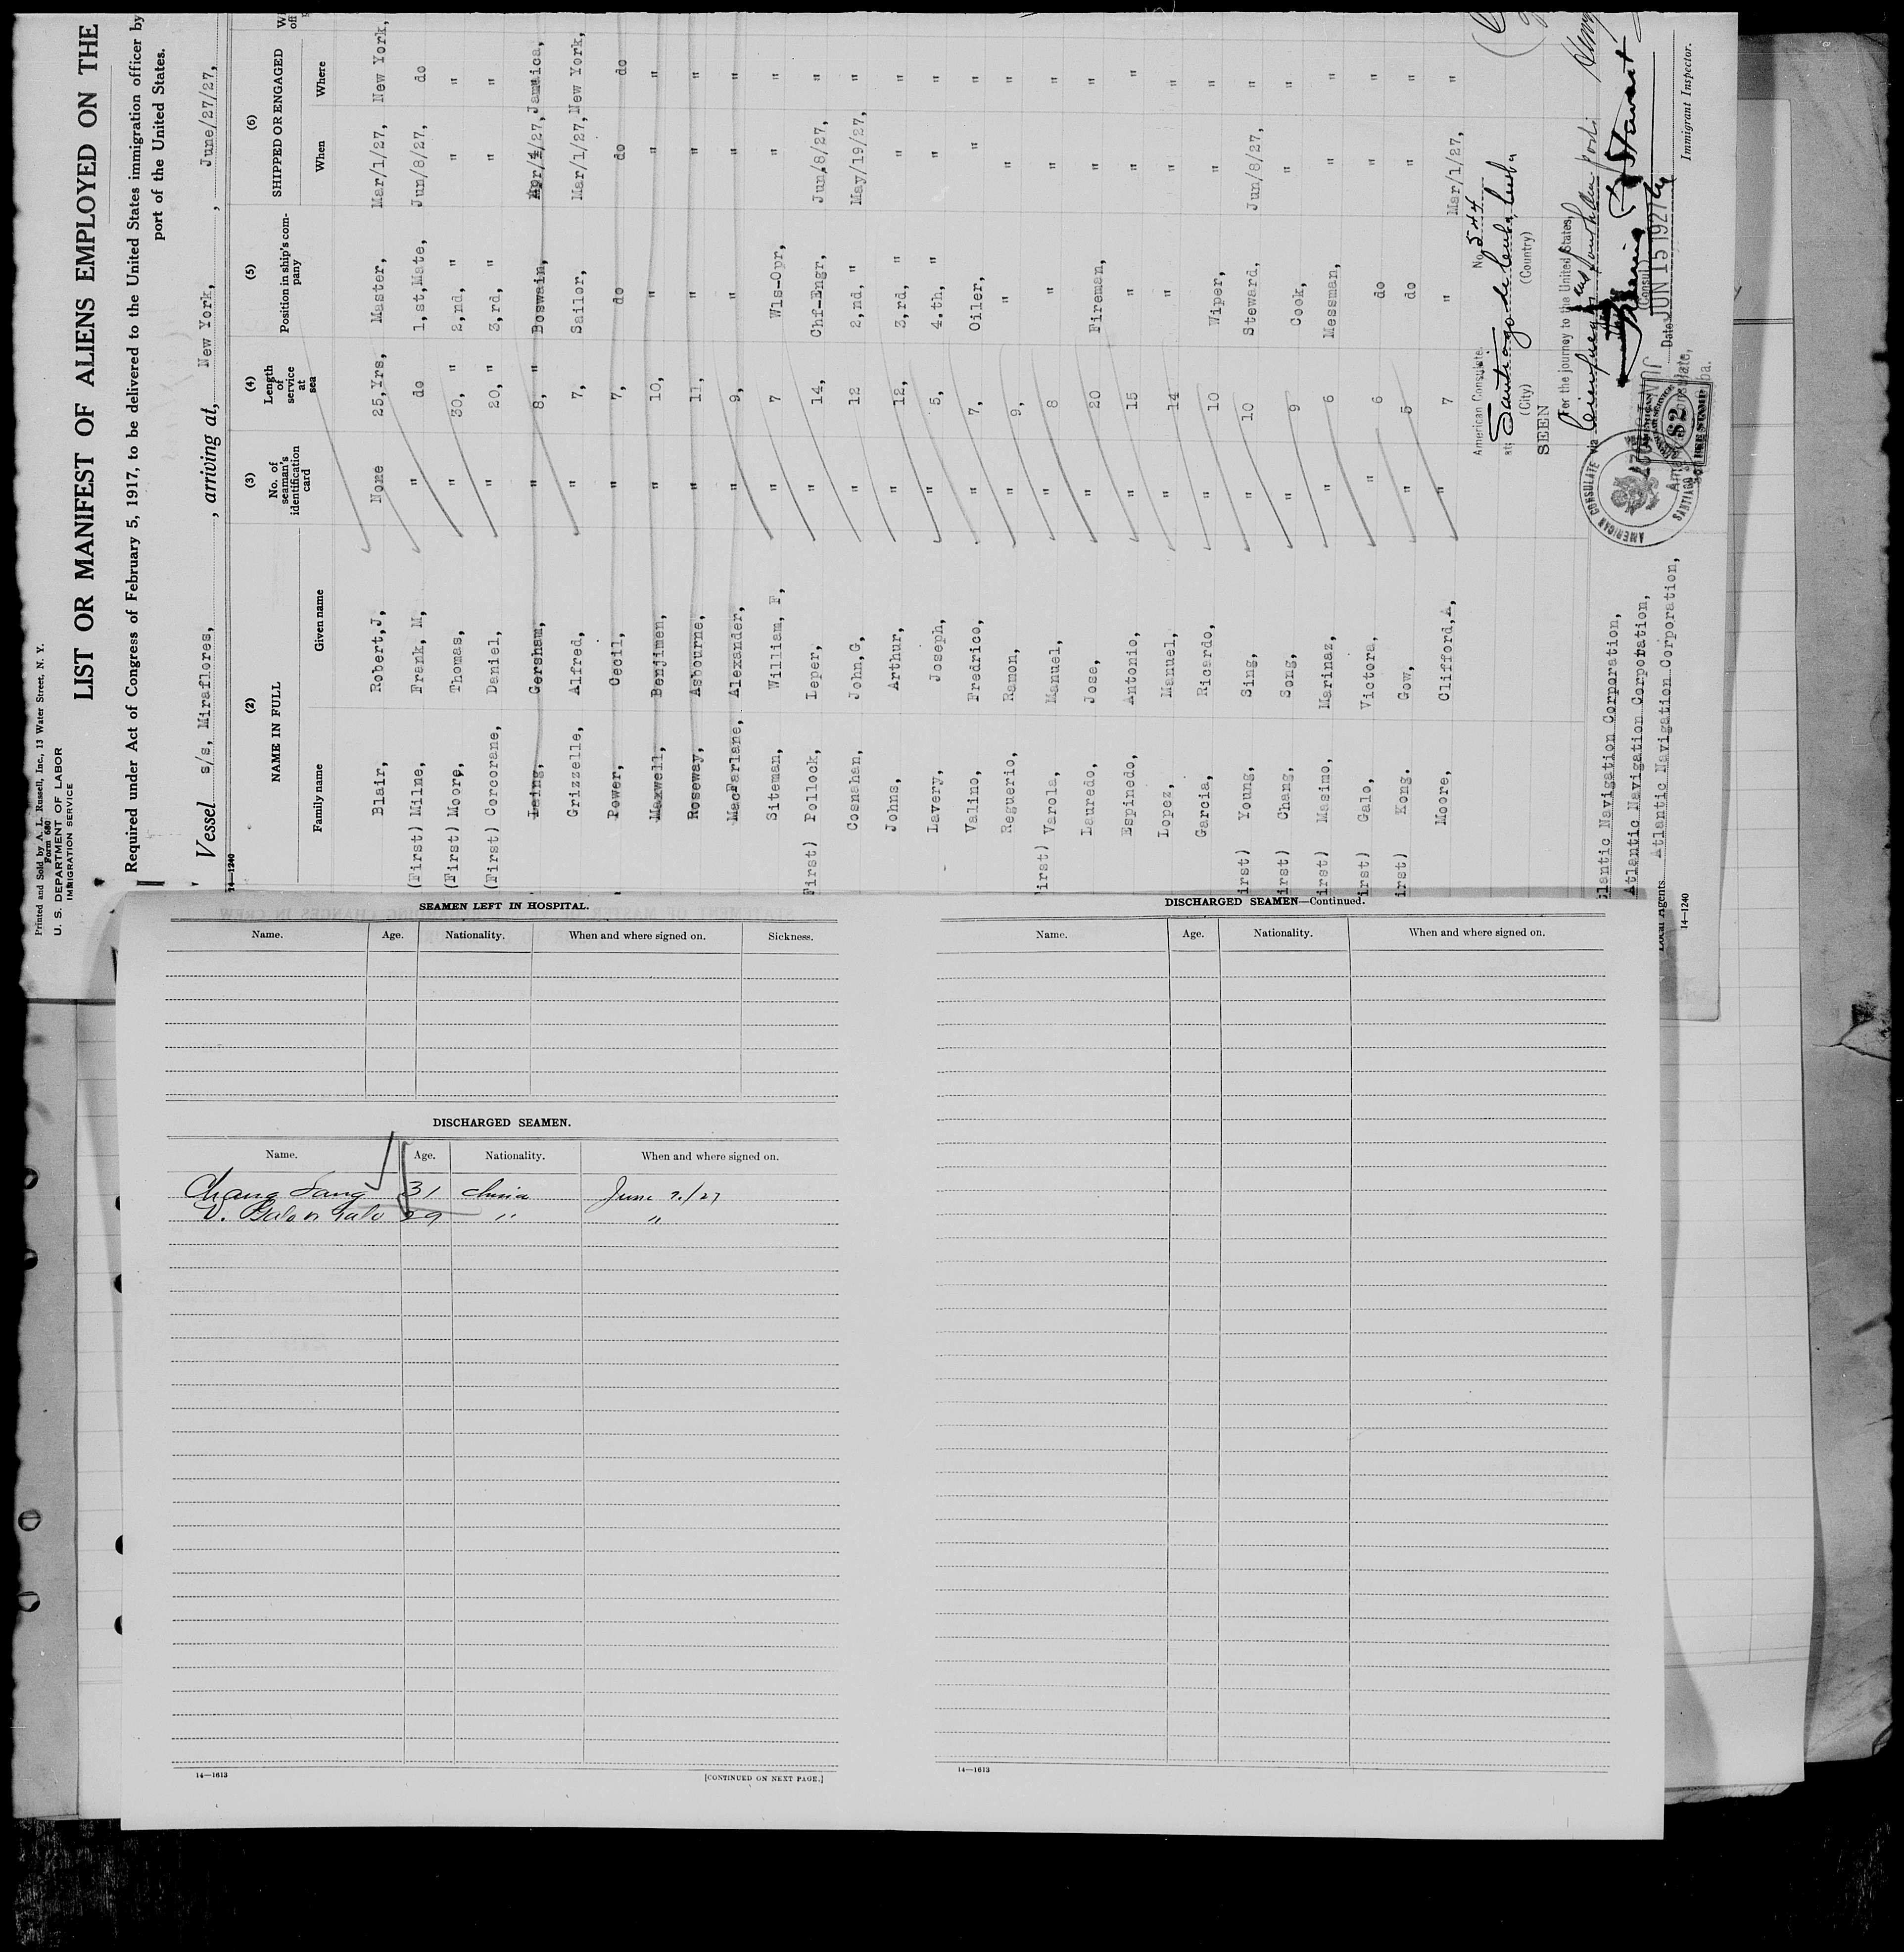 Printed and Sold by A. L. Russell, Inc., 13 Water Street, N. Y.
Form 680
U. S. DEPARTMENT OF LABOR
IMMIGRATION SERVICE
LIST OR MANIFEST OF ALIENS EMPLOYED ON THE
Required under Act of Congress of February 5, 1917, to be delivered to the United States immigration officer by
port of the United States.
Vessel s/s, Miraflores, , arriving at, New York, , June/27/27,
14—1240
(2) (3) (4) (5) (6)
NAME IN FULL No. of seaman's identification card Length of service at sea Position in ship's company SHIPPED OR ENGAGED
Family name Given name When Where
Blair, Robert,J, None 25,Yrs, Master, Mar/1/27, New York,
(First) Milne, Frank, M, " do 1,st,Mate, Jun/8/27, do
(First) Moore, Thomas, " 30, " 2,nd, " " "
(First) Corcorane, Daniel, " 20, " 3,rd, " " "
Laing, Gersham, " 8, " Boswain, Apr/4/27, Jamaica,
Grizzelle, Alfred, " 7, Sailor, Mar/1/27, New York,
Power, Cecil, " 7, do do do
Maxwell, Benjimen, " 10, " " "
Roseway, Asbourne, " 11, " " "
MacFarlane, Alexander, " 9, " " "
Siteman, William, F, " 7 Wls-Opr, " "
First) Pollock, Leper, " 14, Chf-Engr, Jun/8/27, "
Cosnahan, John,G, " 12 2,nd, " May/19/27, "
Johns, Arthur, " 12, 3,rd, " " "
Lavery, Joseph, " 5, 4.th, " " "
Valino, Fredrico, " 7, Oiler, " "
Reguerio, Ramon, " 9, " " "
irst) Varola, Manuel, " 8 " " "
Lauredo, Jose, " 20 Fireman, " "
Espinedo, Antonio, " 15 " " "
Lopez, Manuel, " 14 " " "
Garcia, Ricardo, " 10 Wiper, " "
irst) Young, Sing, " 10 Steward, Jun/8/27, "
irst) Chang, Song, " 9 Cook, " "
irst) Masino, Marinaz, " 6 Messman, " "
irst) Galo, Victora, " 6 do " "
irst) Kong. Gow, " 5 do " "
Moore, Clifford,A, " 7 " Mar/1/27, "
American Consulate. No. 544
at Santiago de Cuba, Cuba
(City) (Country)
SEEN
For the journey to the United States,
via Cienfuegos
(Consul)
Date JUN 15 1927
AMERICAN CONSULATE
SANTIAGO
$2
FEE STAMP
Immigrant Inspector.
lantic Navigation Corporation,
Atlantic Navigation Corporation,
Local Agents Atlantic Navigation Corporation,
14—1240
SEAMEN LEFT IN HOSPITAL.
Name. Age. Nationality. When and where signed on. Sickness.
DISCHARGED SEAMEN.
Name. Age. Nationality. When and where signed on.
Chang Sang 31 China June 7/27
V. Galo 29 " "
14—1613 [CONTINUED ON NEXT PAGE.]
DISCHARGED SEAMEN—Continued.
Name. Age. Nationality. When and where signed on.
14—1613